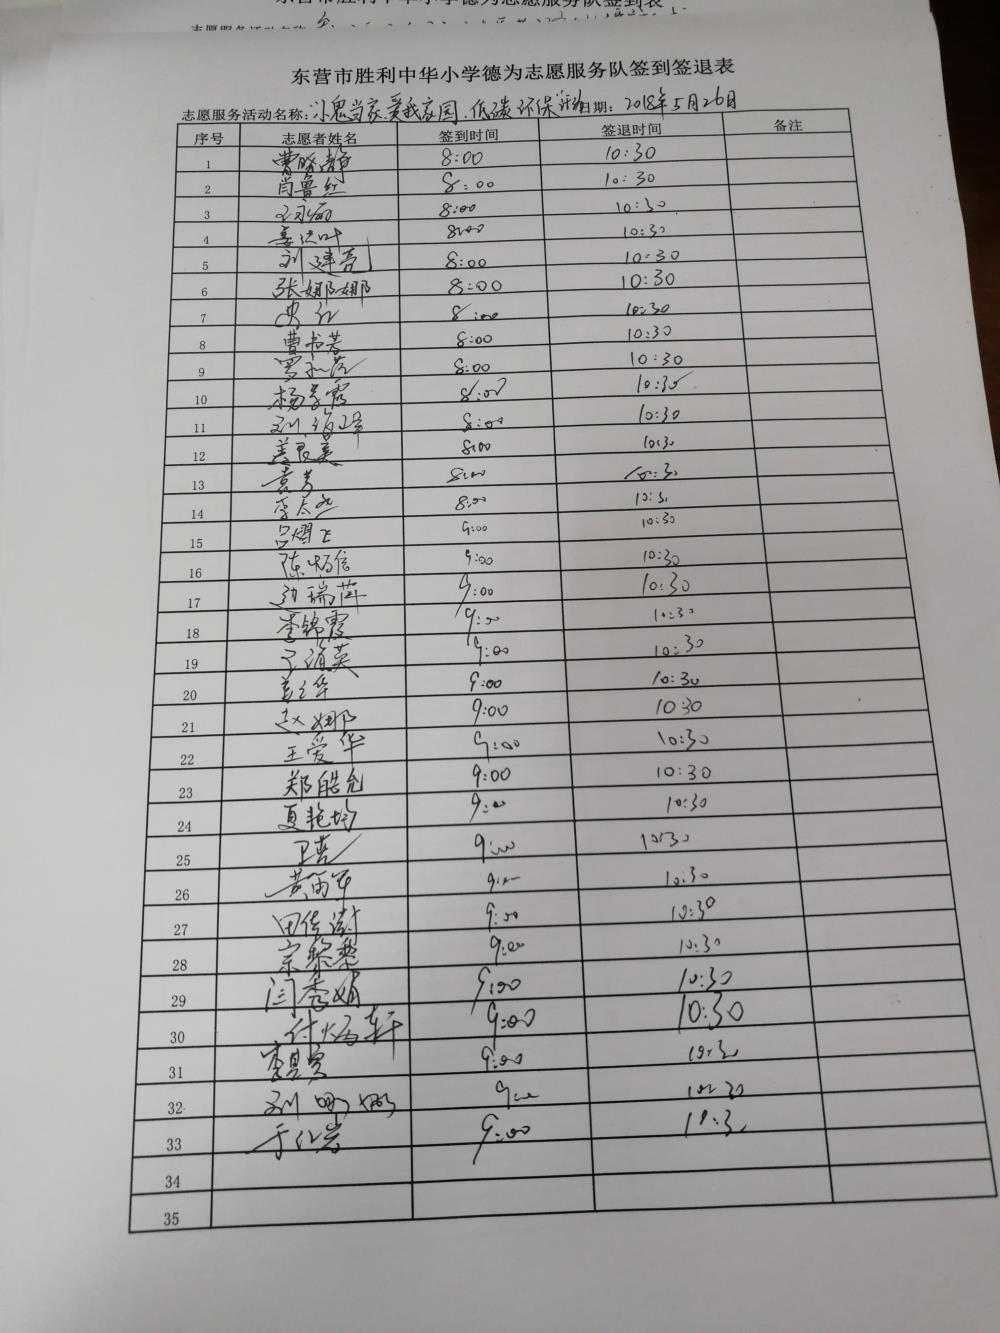 东营市胜利中华小学德为志愿服务队签到签退表
志愿服务活动名称：小鬼当家、爱我家园、低碳环保活动 日期：2018年5月26日
序号 志愿者姓名 签到时间 签退时间 备注
1 曹晓静 8:00 10:30
2 肖鲁红 8:00 10:30
3 8:00 10:30
4 8:00 10:30
5 刘建亮 8:00 10:30
6 张娜娜 8:00 10:30
7 史红 8:00 10:30
8 曹书芳 8:00 10:30
9 8:00 10:30
10 杨学霞 8:00 10:30
11 8:00 10:30
12 盖良美 8:00 10:30
13 袁芳 8:00 10:30
14 8:00 10:30
15 吕熠飞 9:00 10:30
16 陈炳信 9:00 10:30
17 边瑞萍 9:00 10:30
18 李锦霞 9:00 10:30
19 9:00 10:30
20 9:00 10:30
21 赵娜 9:00 10:30
22 王爱华 9:00 10:30
23 郑皓允 9:00 10:30
24 夏艳均 9:00 10:30
25 9:00 10:30
26 9:00 10:30
27 田佳澍 9:00 10:30
28 宗黎黎 9:00 10:30
29 闫秀娟 9:00 10:30
30 付炳轩 9:00 10:30
31 9:00 10:30
32 9:00 10:30
33 9:00 10:30
34
35